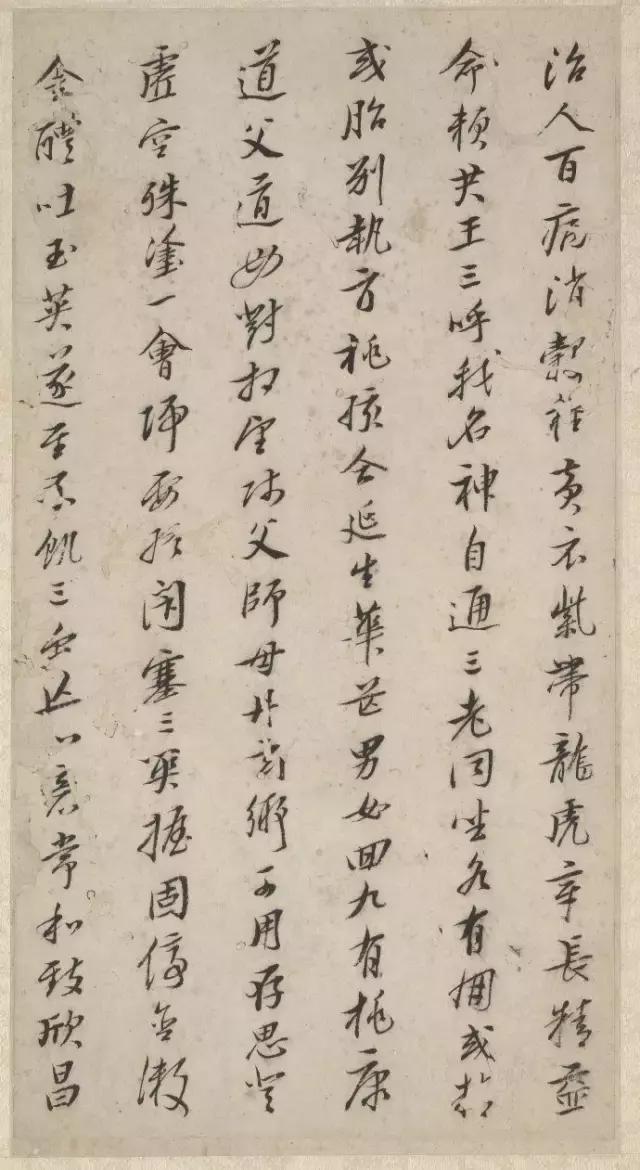 治人百病消穀糧黃衣紫帶龍虎章長精益
命賴共王三呼我名神自通三老同坐各有朋或精
或胎別執方桃孩合延生華芒男女回九有桃康
道父道母對相望師父師母丹玄鄉可用存思登
虛空殊塗一會歸要終閉塞三關握固停含漱
金醴吐玉英遂至不飢三蟲亡心意常和致欣昌